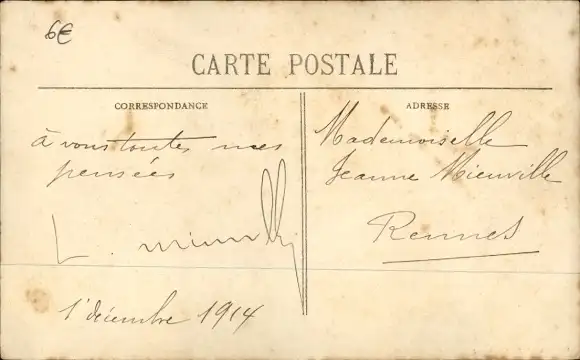 6€
CARTE POSTALE
CORRESPONDANCE
à vous toutes mes
pensées
L.
1' décembre 1914
ADRESSE
Mademoiselle
Jeanne Mieuville
Rennes